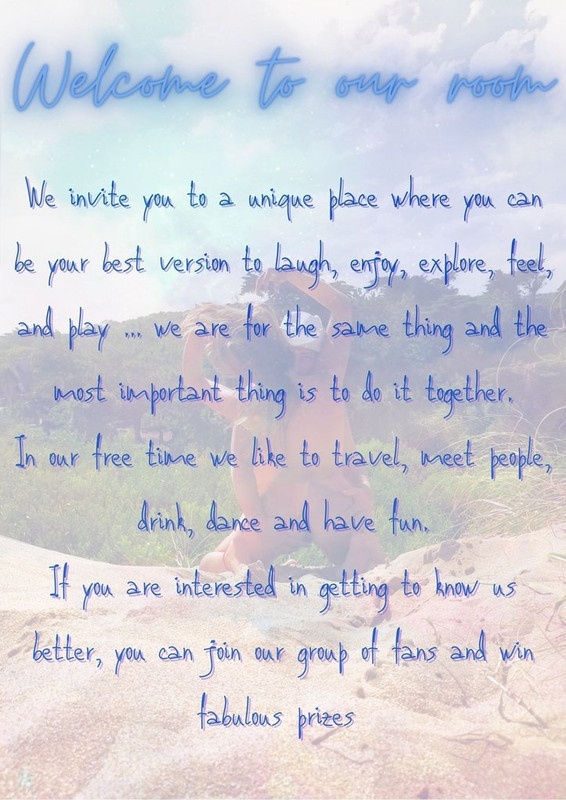 Welcome to our room
We invite you to a unique place where you can
be your best version to laugh, enjoy, explore, feel,
and play ... we are for the same thing and the
most important thing is to do it together.
In our free time we like to travel, meet people,
drink, dance and have fun.
If you are interested in getting to know us
better, you can join our group of fans and win
fabulous prizes